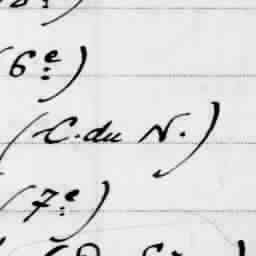 (6e)
(C. du N.)
(7e)